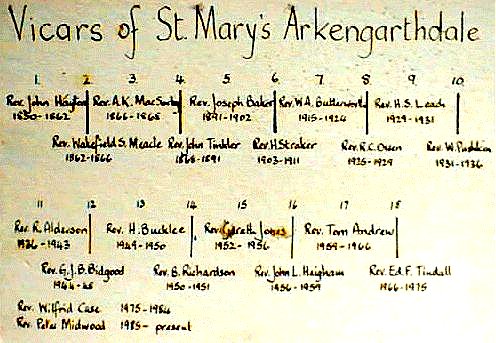 Vicars of St. Mary's Arkengarthdale
1. 2. 3. 4. 5 6 7 8 9. 10.
Rev. John Hayton Rev. A.K. MacSorley Rev. Joseph Baker Rev. W.A. Butterworth Rev. H.S. Leach
1850-1862 1866-1868 1891-1902 1915-1924 1929-1931
Rev. Wakefield S. Meacle Rev. John Tinkler Rev. H. Straker Rev. R.C. Owen Rev. W.
1862-1866 1868-1891 1903-1911 1925-1929 1931-1936
11 12 13 14 15 16 17 18
Rev. R. Alderson Rev. H. Bucklee Rev. Gareth Jones Rev. Tom Andrew
1936-1943 1949-1950 1952-1956 1959-1966
Rev. G.J.B. Bidgood Rev. B. Richardson Rev. John L. Heigham Rev. Ed. F. Tindall
1944-48 1950-1951 1956-1959 1966-1975
Rev. Wilfrid Case 1975-1984
Rev. Peter Midwood 1985- present